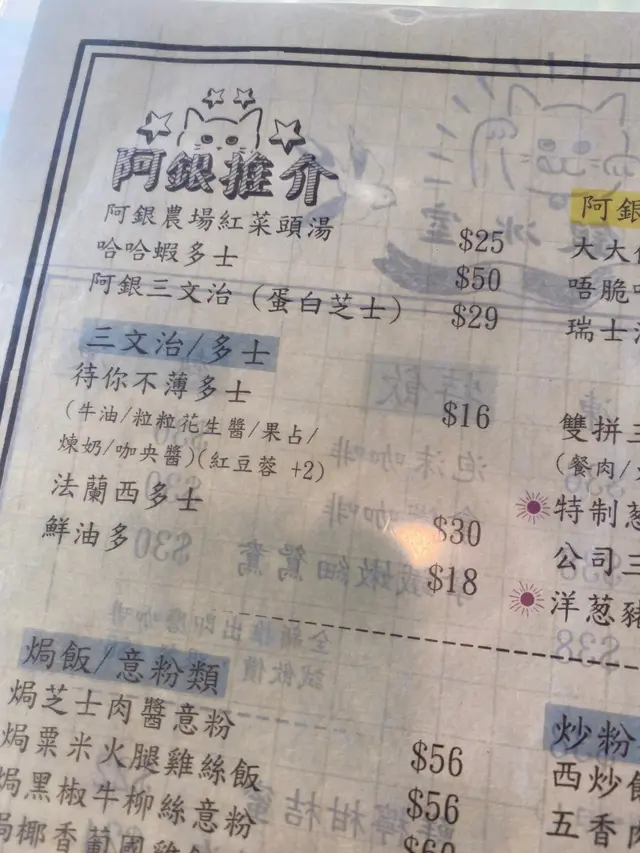 阿銀推介
阿銀農場紅菜頭湯 $25
哈哈蝦多士 $50
阿銀三文治（蛋白芝士） $29
三文治/多士
待你不薄多士 $16
（牛油/粒粒花生醬/果占/
煉奶/咖央醬）(紅豆蓉 +2)
法蘭西多士 $30
鮮油多 $18
焗飯/意粉類
焗芝士肉醬意粉 $56
焗粟米火腿雞絲飯 $56
焗黑椒牛柳絲意粉 $60
阿銀
大大
唔脆
瑞士
雙拼三
（餐肉/
特制蔥
公司三
洋葱豬
炒粉
西炒飯
五香肉